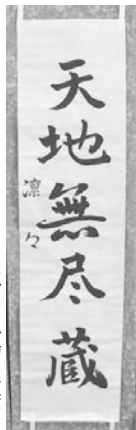 天地無尽蔵
凛々